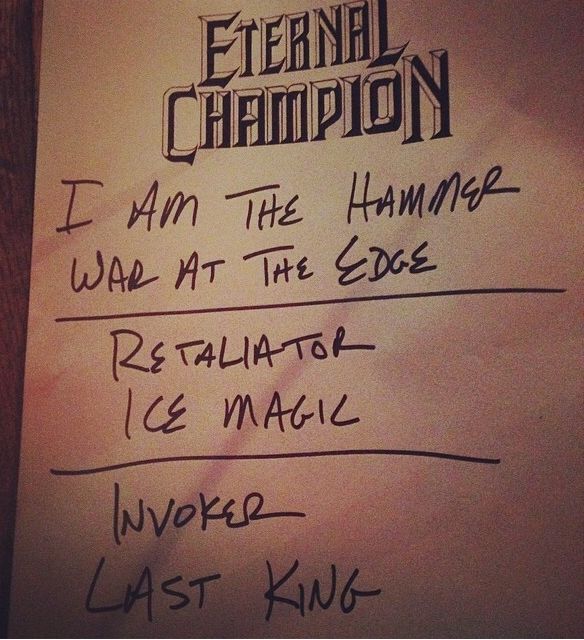 ETERNAL
CHAMPION
I AM THE HAMMER
WAR AT THE EDGE
RETALIATOR
ICE MAGIC
INVOKER
LAST KING